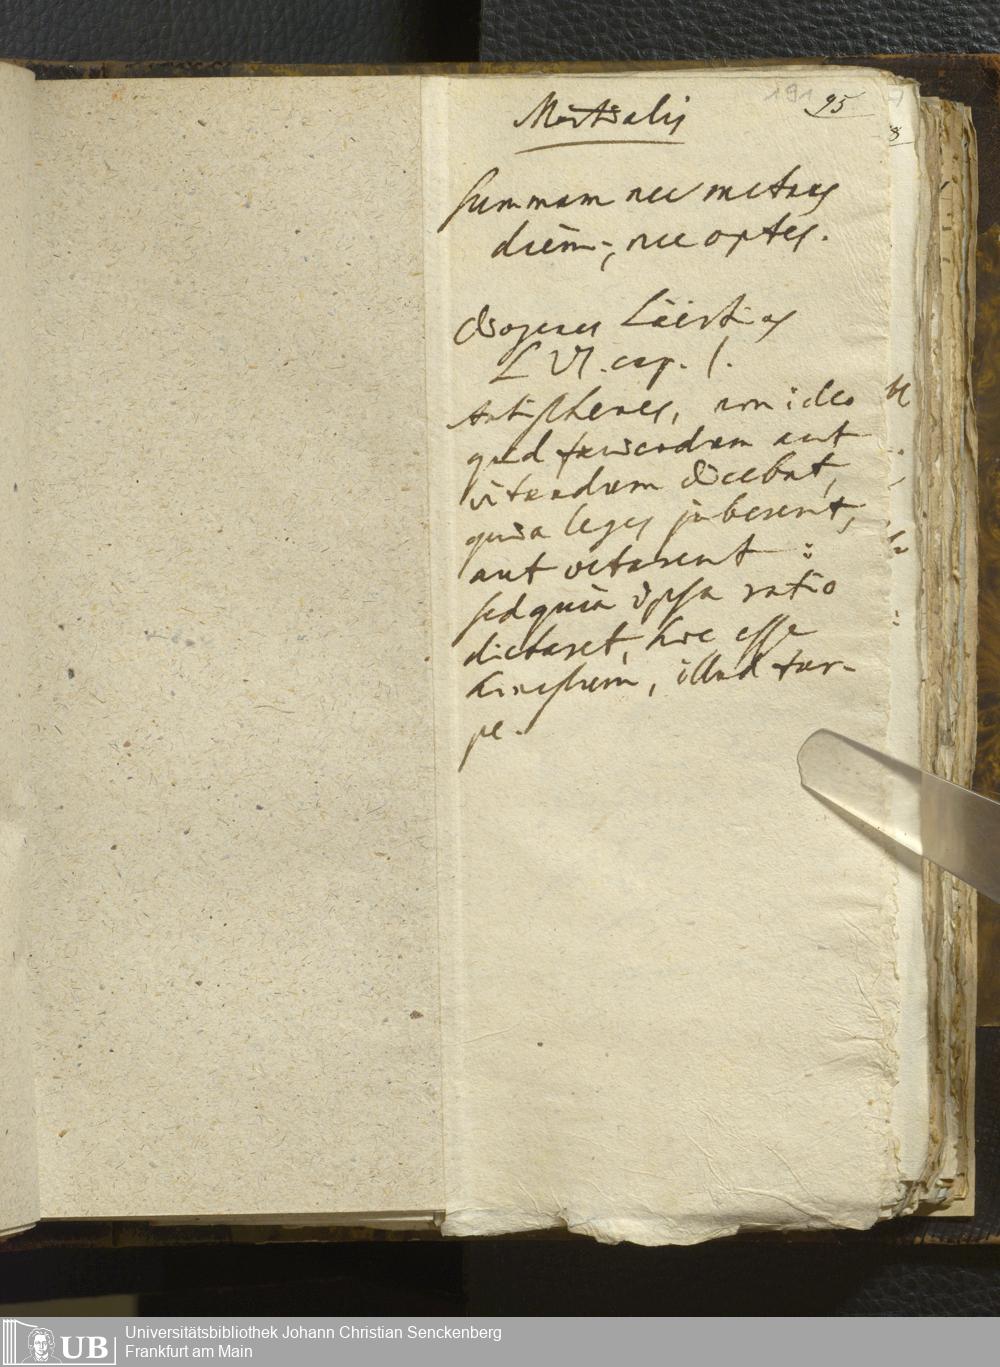 191 95
Martialis
Summam nec metuas
diem, nec optes.
Diogenes Läertius
L VI. cap. 1.
Antisthenes, non ideo
quid faciendum aut
vitandum dicebat,
quia leges juberent,
aut vetarent :
sed quia ipsa ratio
dictaret, hoc esse
honestum, illud tur-
pe.
UB
Universitätsbibliothek Johann Christian Senckenberg
Frankfurt am Main